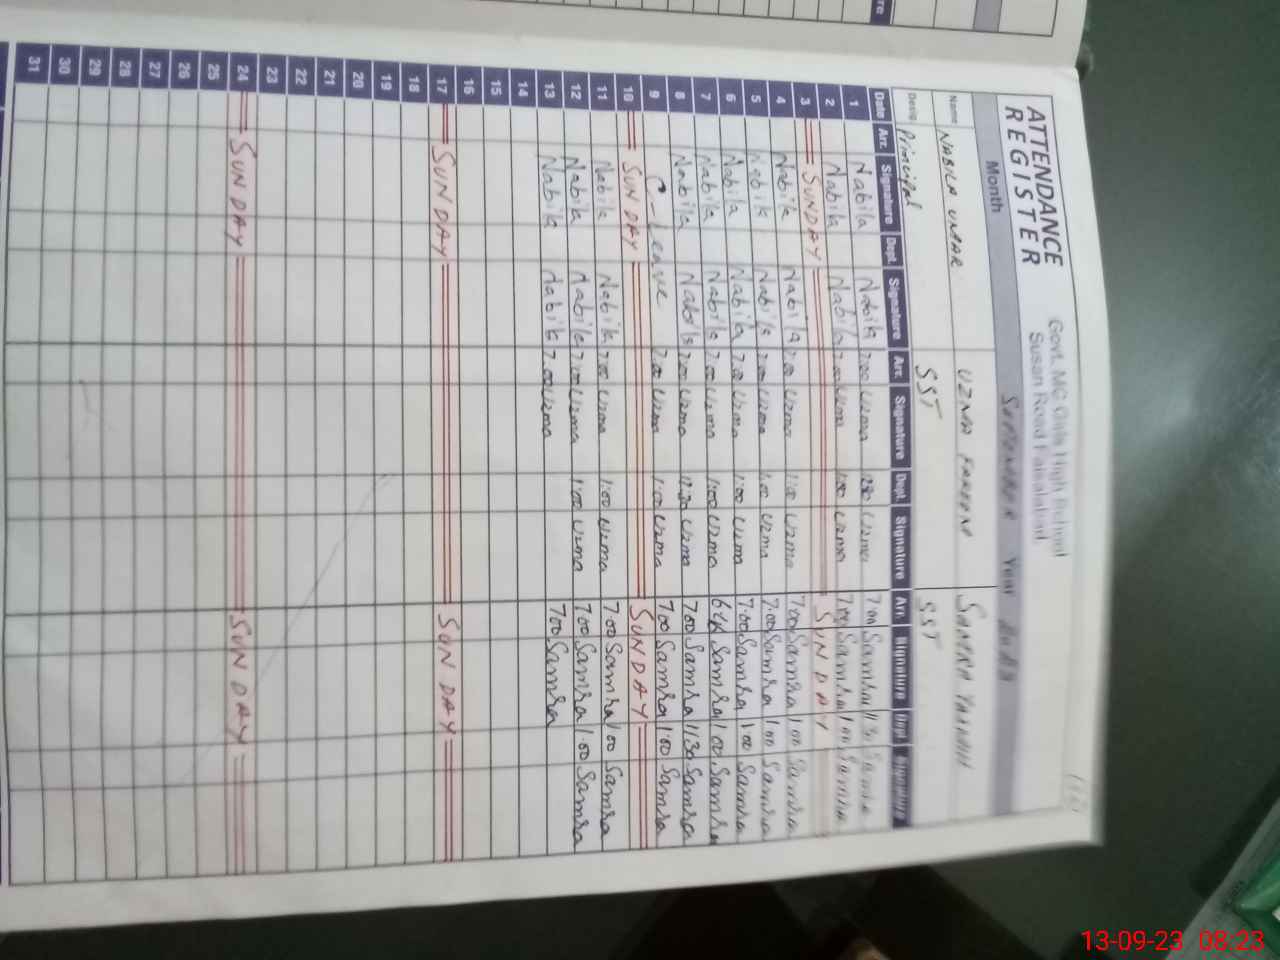 ATTENDANCE REGISTER
Govt. MC Girls High School
Susan Road Faisalabad
Month SEPTEMBER Year
Name NABILA UMAR UZMA SAMRA
Desig. Principal SST SST
Date Arr. Signature Dept. Signature Arr. Signature Dept. Signature Arr. Signature Dept. Signature
1 Nabila Nabila 7:00 Uzma Uzma 7:00 Samra 11:30
2 Nabila Nabila 7:00 Uzma Uzma 7:00 Samra 1:00 Samra
3 SUNDAY SUNDAY
4 Nabila Nabila 7:00 Uzma 1:00 Uzma 7:00 Samra 1:00 Samra
5 Nabila Nabila 7:00 Uzma 1:00 Uzma 7:00 Samra 1:00 Samra
6 Nabila Nabila 7:00 Uzma 1:00 Uzma 7:00 Samra 1:00 Samra
7 Nabila Nabila 7:00 Uzma 1:00 Uzma Samra 1:00 Samra
8 Nabila Nabila 7:00 Uzma Uzma 7:00 Samra 11:30 Samra
9 C-Leave 7:00 Uzma 1:00 Uzma 7:00 Samra 1:00 Samra
10 SUNDAY SUNDAY
11 Nabila Nabila 7:00 Uzma 1:00 Uzma 7:00 Samra 1:00 Samra
12 Nabila Nabila 7:00 Uzma 1:00 Uzma 7:00 Samra 1:00 Samra
13 Nabila Nabila 7:00 Uzma 7:00 Samra
14
15
16
17 SUNDAY SUNDAY
18
19
20
21
22
23
24 SUNDAY SUNDAY
25
26
27
28
29
30
31
13-09-23 08:23